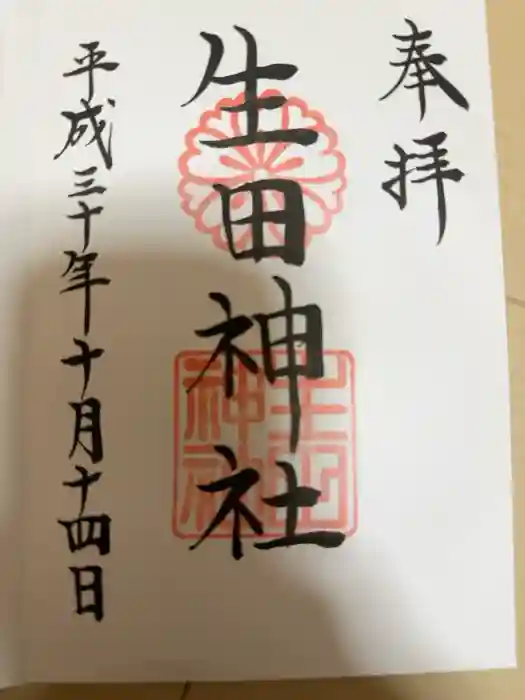 奉拝
生田神社
生田神社
平成三十年十月十四日